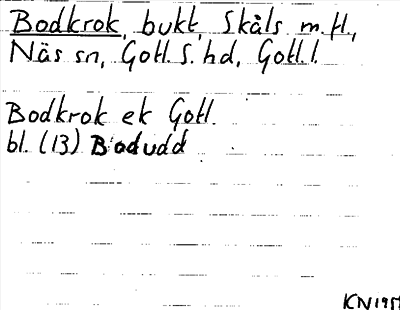 Bodkrok, bukt, Skåls m. fl.,
Näs sn, Gotl. S. hd, Gotl. l.
Bodkrok ek Gotl.
bl. (13) Bodudd